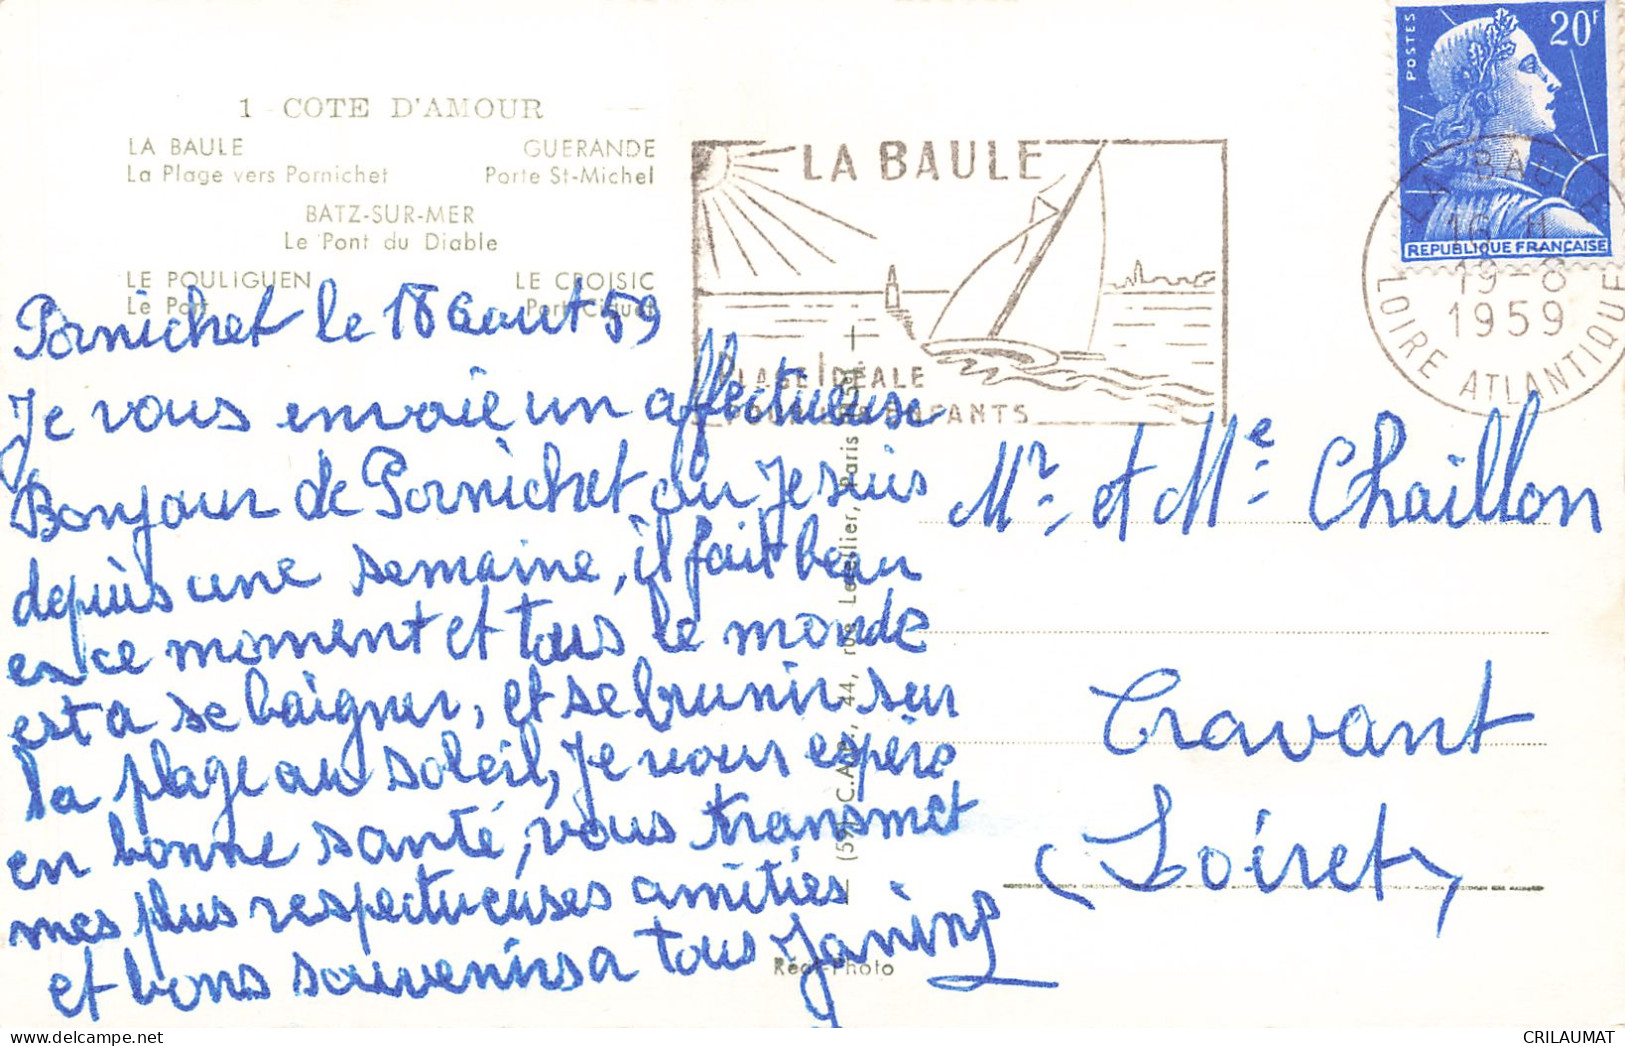 1 COTE D'AMOUR
LA BAULE
La Plage vers Pornichet
GUERANDE
Porte St-Michel
BATZ-SUR-MER
Le Pont du Diable
LE POULIGUEN
Le Port
LE CROISIC
Port
LA BAULE
PLAGE IDÉALE
POUR LES ENFANTS
POSTES
20F
REPUBLIQUE FRANÇAISE
LA BAULE
16 H
19-8
1959
LOIRE ATLANTIQUE
Pornichet le 18 aout 59
Je vous envoie un affectueuse
Bonjour de Pornichet ou Je suis
depuis une semaine, il fait beau
en ce moment et tous le monde
est a se baigner, et se brunir sur
la plage au soleil, Je vous espère
en bonne santé, vous transmet
mes plus respectueuses amitiés
et bons souvenirs a tous Janine
Mr et Me Chaillon
Cravant
(Loiret)
44, rue Letellier, Paris
Réal-Photo
CRILAUMAT